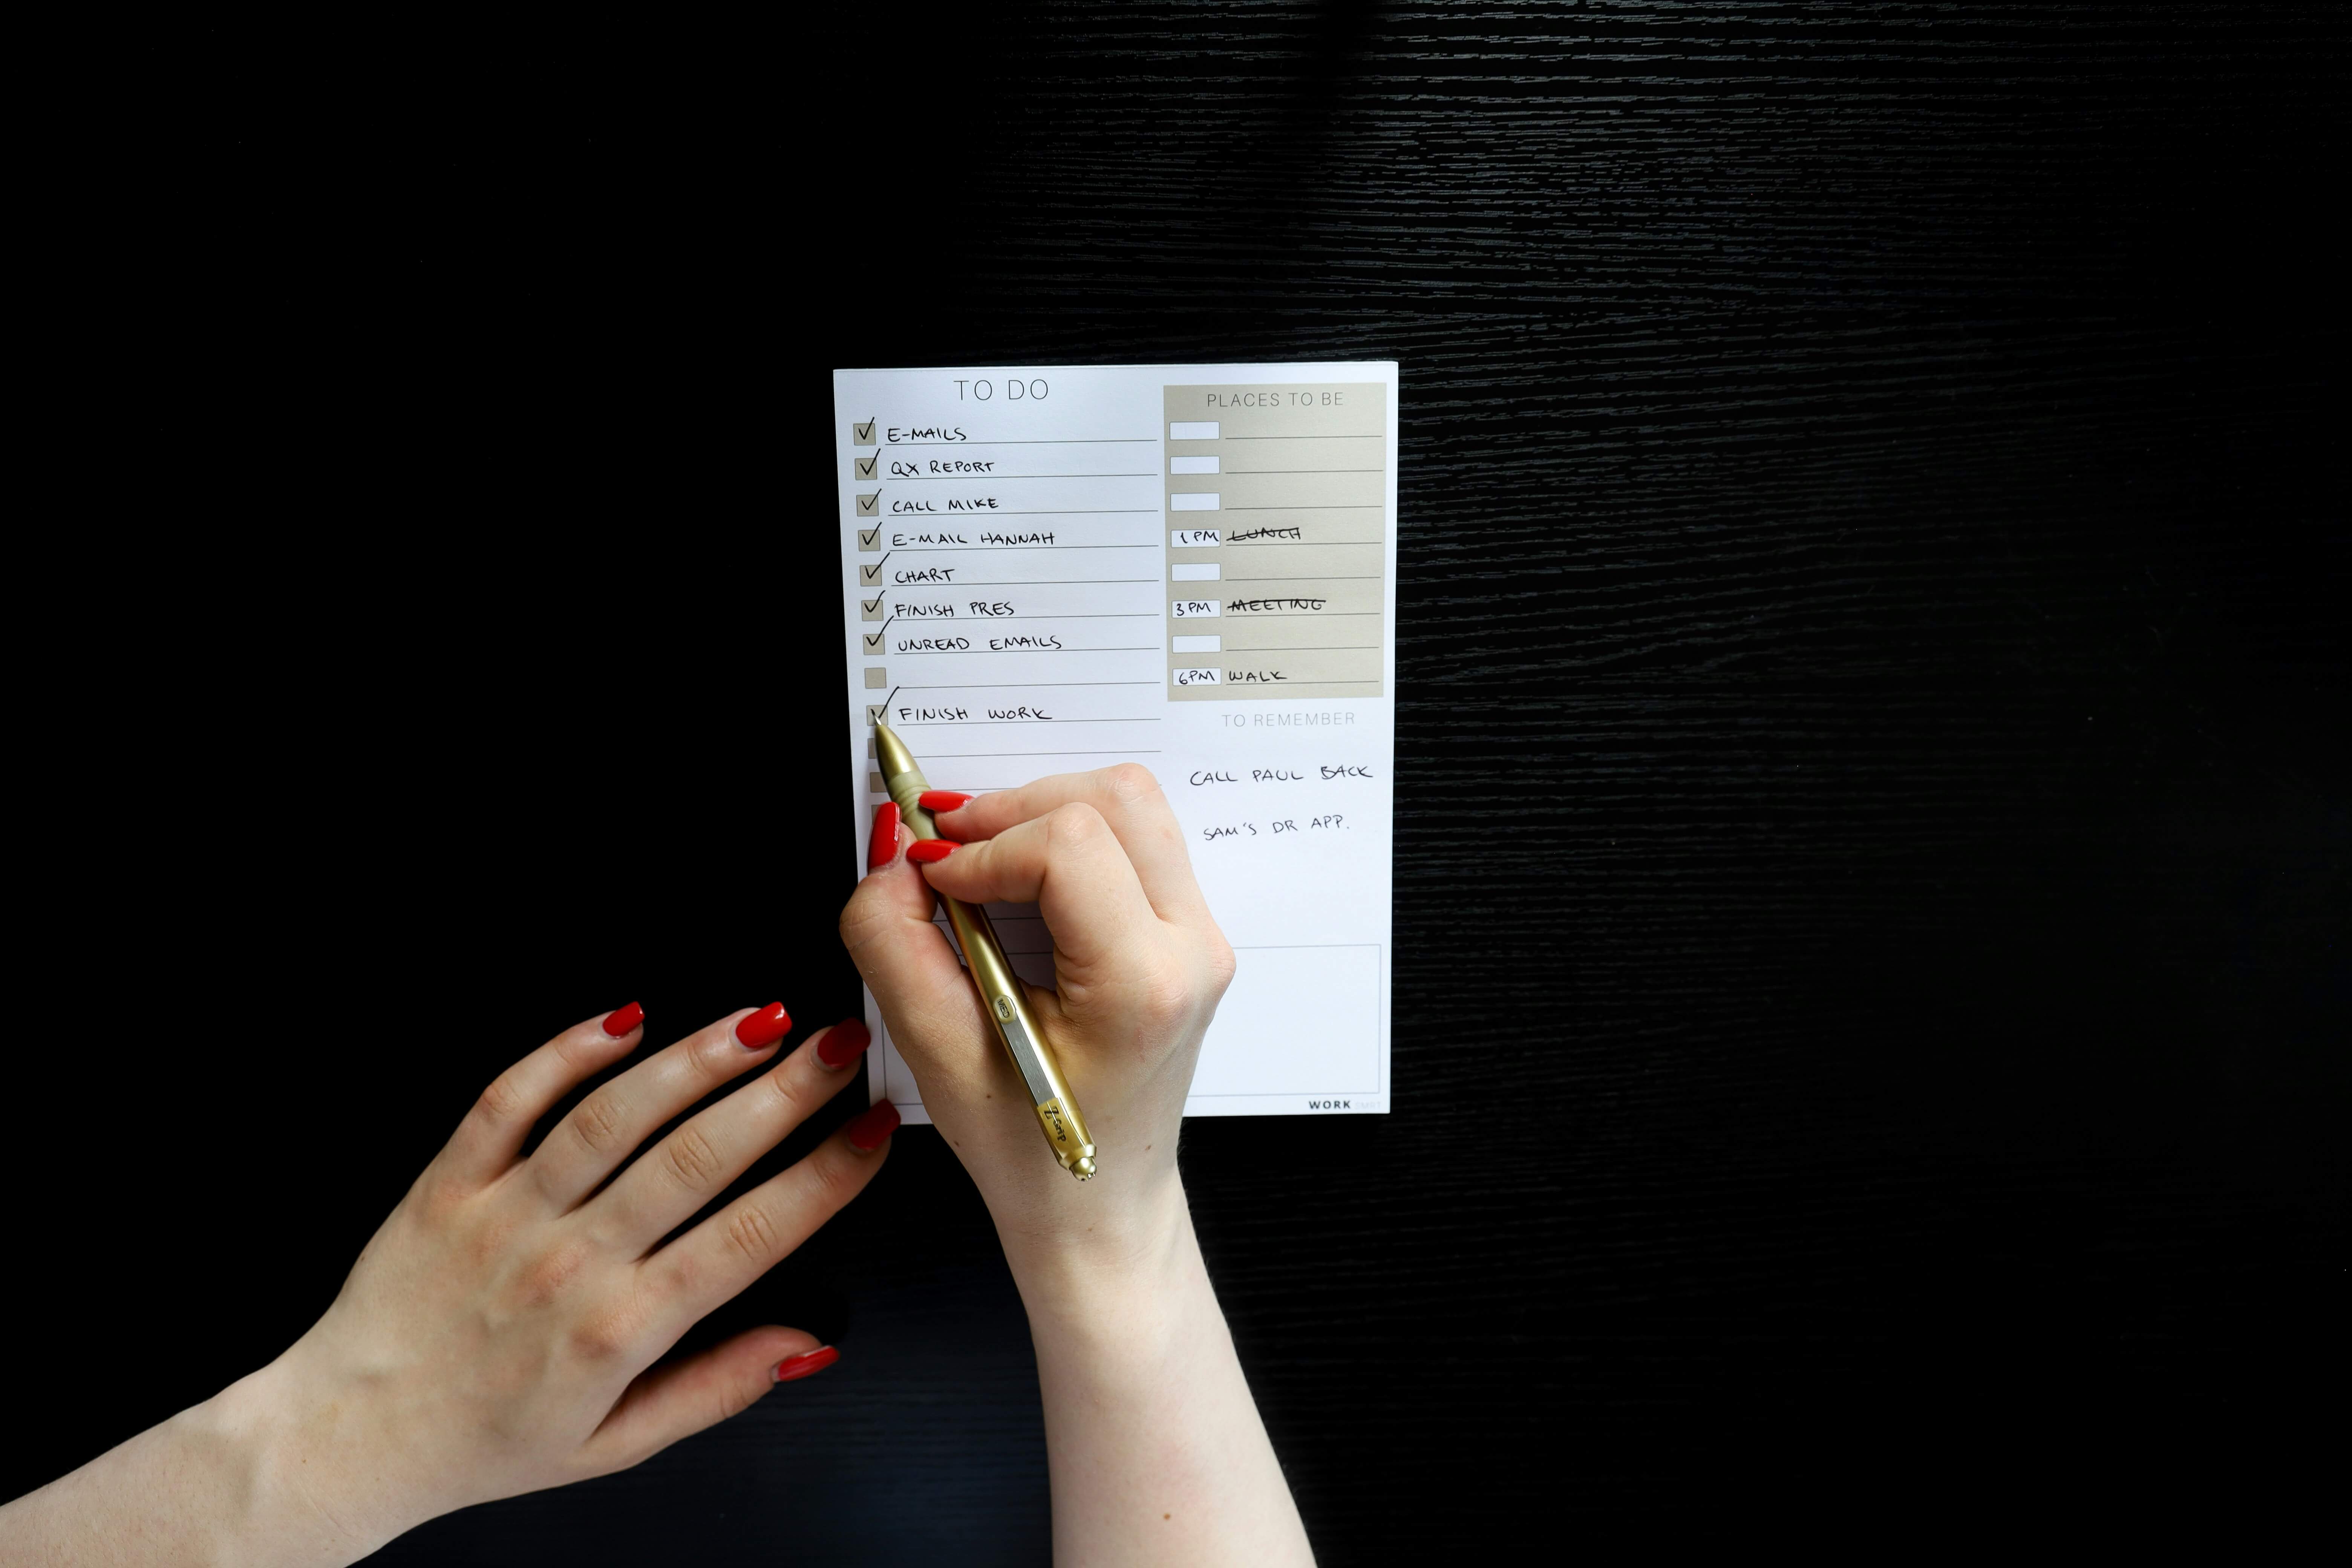 TO DO
E-MAILS
QX REPORT
CALL MIKE
E-MAIL HANNAH
CHART
FINISH PRES
UNREAD EMAILS
FINISH WORK
PLACES TO BE
1 PM LUNCH
3 PM MEETING
6PM WALK
TO REMEMBER
CALL PAUL BACK
SAM'S DR APP.
WORK
MED
Z-Grip